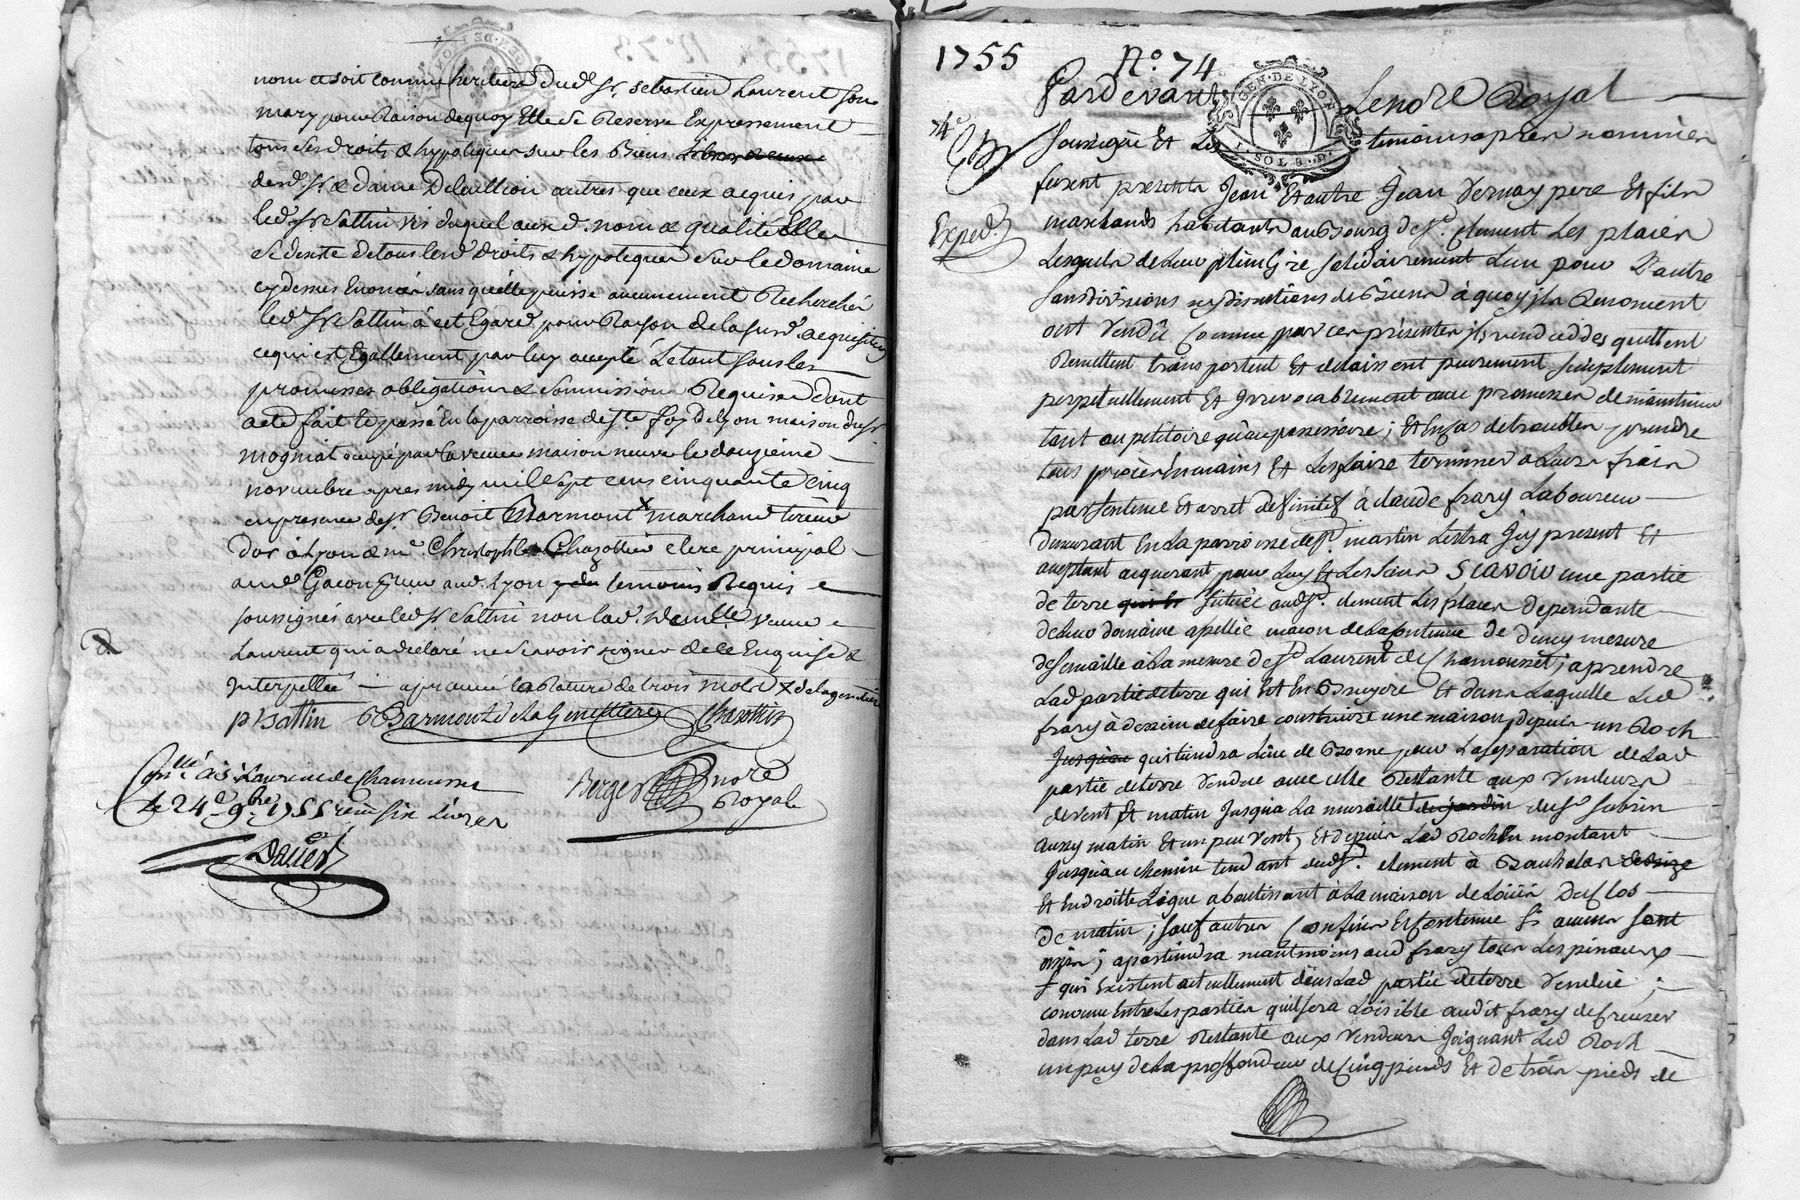 nom et soit comme heritiere dud. Sr. sebastien Laurent son
mary pour Raison dequoy Elle se Reserve Expressement
tous ses droits & hypoteques sur les Biens
desd. Sr. & dame autres que ceux acquis par
led. Sr Sattin vis duquel auxd. nom & qualité Elle
se desiste detous lesd droits & hypoteques sur le domaine
cy dessus Enoncés sans qu'elle puisse aucunement Rechercher
led Sr Sattin à cet Egard pour Raison de la susd. acquisition
ce qui est Egallement par luy accepté Le tout sous les
promesses obligations & soumissions Requises dont
acte fait & passé En la parroisse de ste foy Lyon maison du sr
mogniat occupé par la veuve maison neuve le douzieme
novembre apres midy mille sept cens cinquante cinq
en presence de sr Benoit Barmont x marchand tireur
dor à Lyon & me. Christophle Chazottier clerc principal
aud. Lyon temoins Requis
soussignés avec led Sr Sattin non lad. veuve
Laurent qui a declaré ne Scavoir signer de ce Enquise &
Interpellée — approuvé la Rature de trois mots x de la genetiere
p Sattin Barmont de la Genettiere Chazottier
Cllé à St Laurent de Chamousset
Le 24e 9bre 1755 reçu six Livres
Berger nore
Royal
Daver
1755 No. 74
Pardevant Le nore Royal
74e
soussigné Et Les temoins apres nommés
furent presents Jean Et autre Jean Vernay pere Et fils
Exped.
marchands habitants au Bourg de St. Clement Les places
Lesquels de Leur plein Gré solidairement L'un pour L'autre
sans divisions ny discutions de Biens à quoy ils Renoncent
ont vendû Comme par ces présentes ils vendent cedde quittent
Remettent transportent Et delaissent purement simplement
perpetuellement Et Irrevocablement avec promesses de maintenir
tant au petitoire qu'au possessoire; Et En cas de troubles prendre
tous procès En mains Et Les faire terminer à Leurs frais
par sentence Et arret definitif à claude frary Laboureur
demeurant En La parroisse de St. martin Lestra Icy present Et
acceptant acquerant pour Luy Et Les siens SCAVOIR une partie
de terre située aud St. clement Les places dependante
de Leur domaine apellée de la contenue de mesure
de semaille à La mesure de St Laurent de Chamousset; a prendre
Lad partie de terre qui Est En Bruyere Et dans Laquelle Led
frary à dessein de faire construire une maison, depuis un Roch
Jusqu'au qui tiendra Lieu de Borne pour La separation de Lad
partie de terre vendue avec celle Restante aux vendeurs
de vent Et matin Jusqu'a La muraille du jardin du sr
aussy matin Et un peu vent, Et depuis Led Roch En montant
Jusqu'au chemin tendant dud St. clement à
Et En droitte Ligne aboutissant à La maison de Loüis Duclos
De matin; sauf autres Confins Et contenue Sy aucuns sont
apartiendra neantmoins aud frary tous Les pineaux
qui Existent actuellement dans Lad partie de terre vendue;
convenu Entre Les parties qu'il sera Loisible audit frary de Creuser
dans Lad terre Restante aux vendeurs Joignant Led Roch
un puy de La proffondeur de Cinq pieds Et de trois pieds de